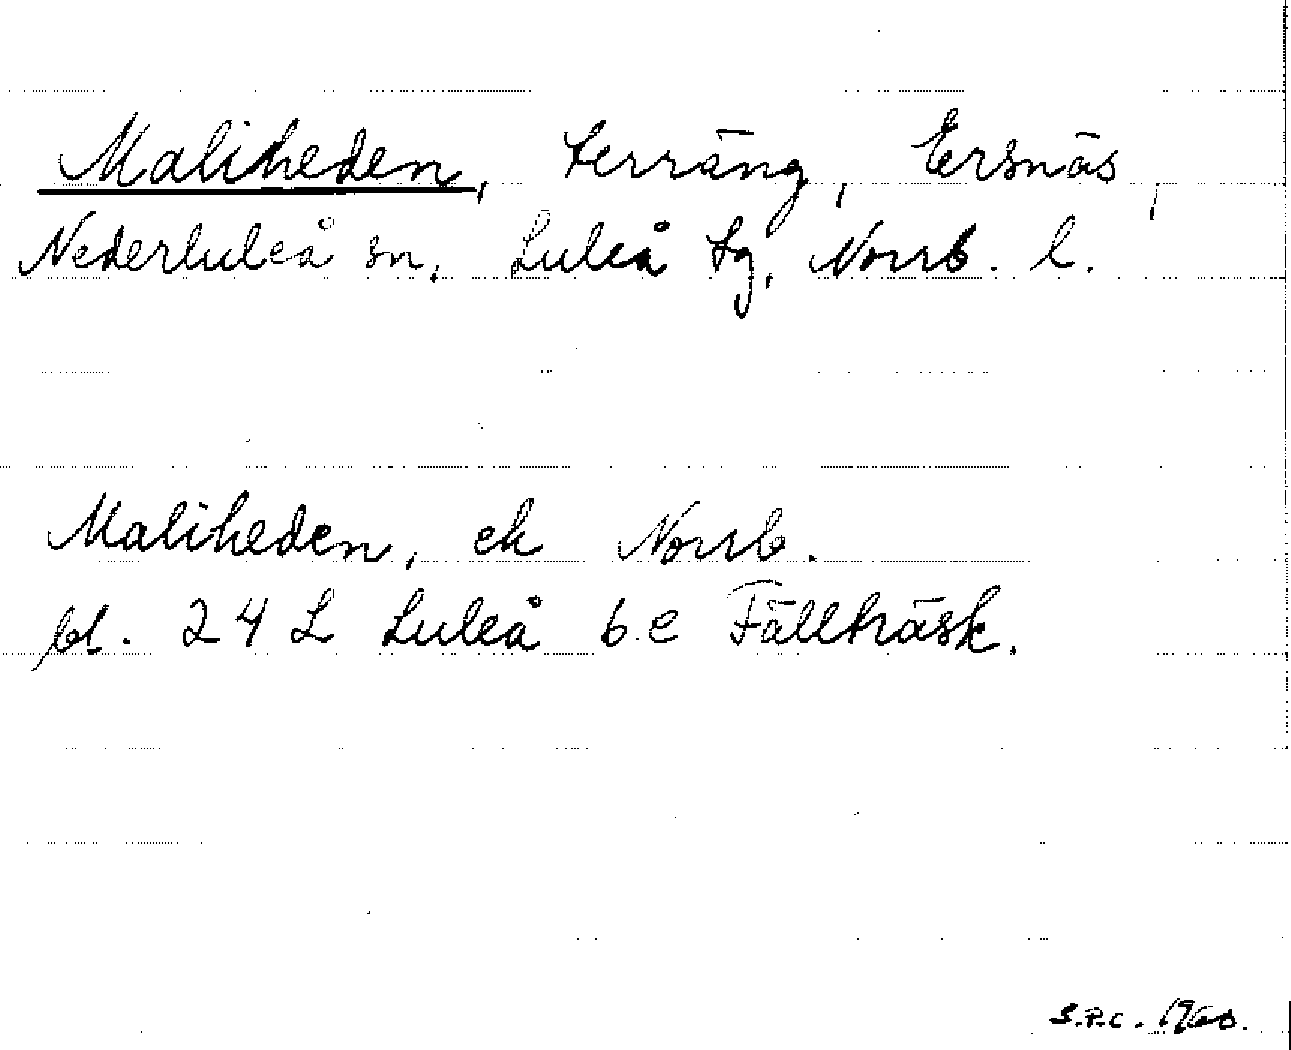 Maliheden, terräng, Ersnäs,
Nederluleå sn, Luleå tg, Norrb. l.
Maliheden, ek Norrb.
bl. 24 L Luleå 6 e Fällträsk.
S.P.C. 1960.